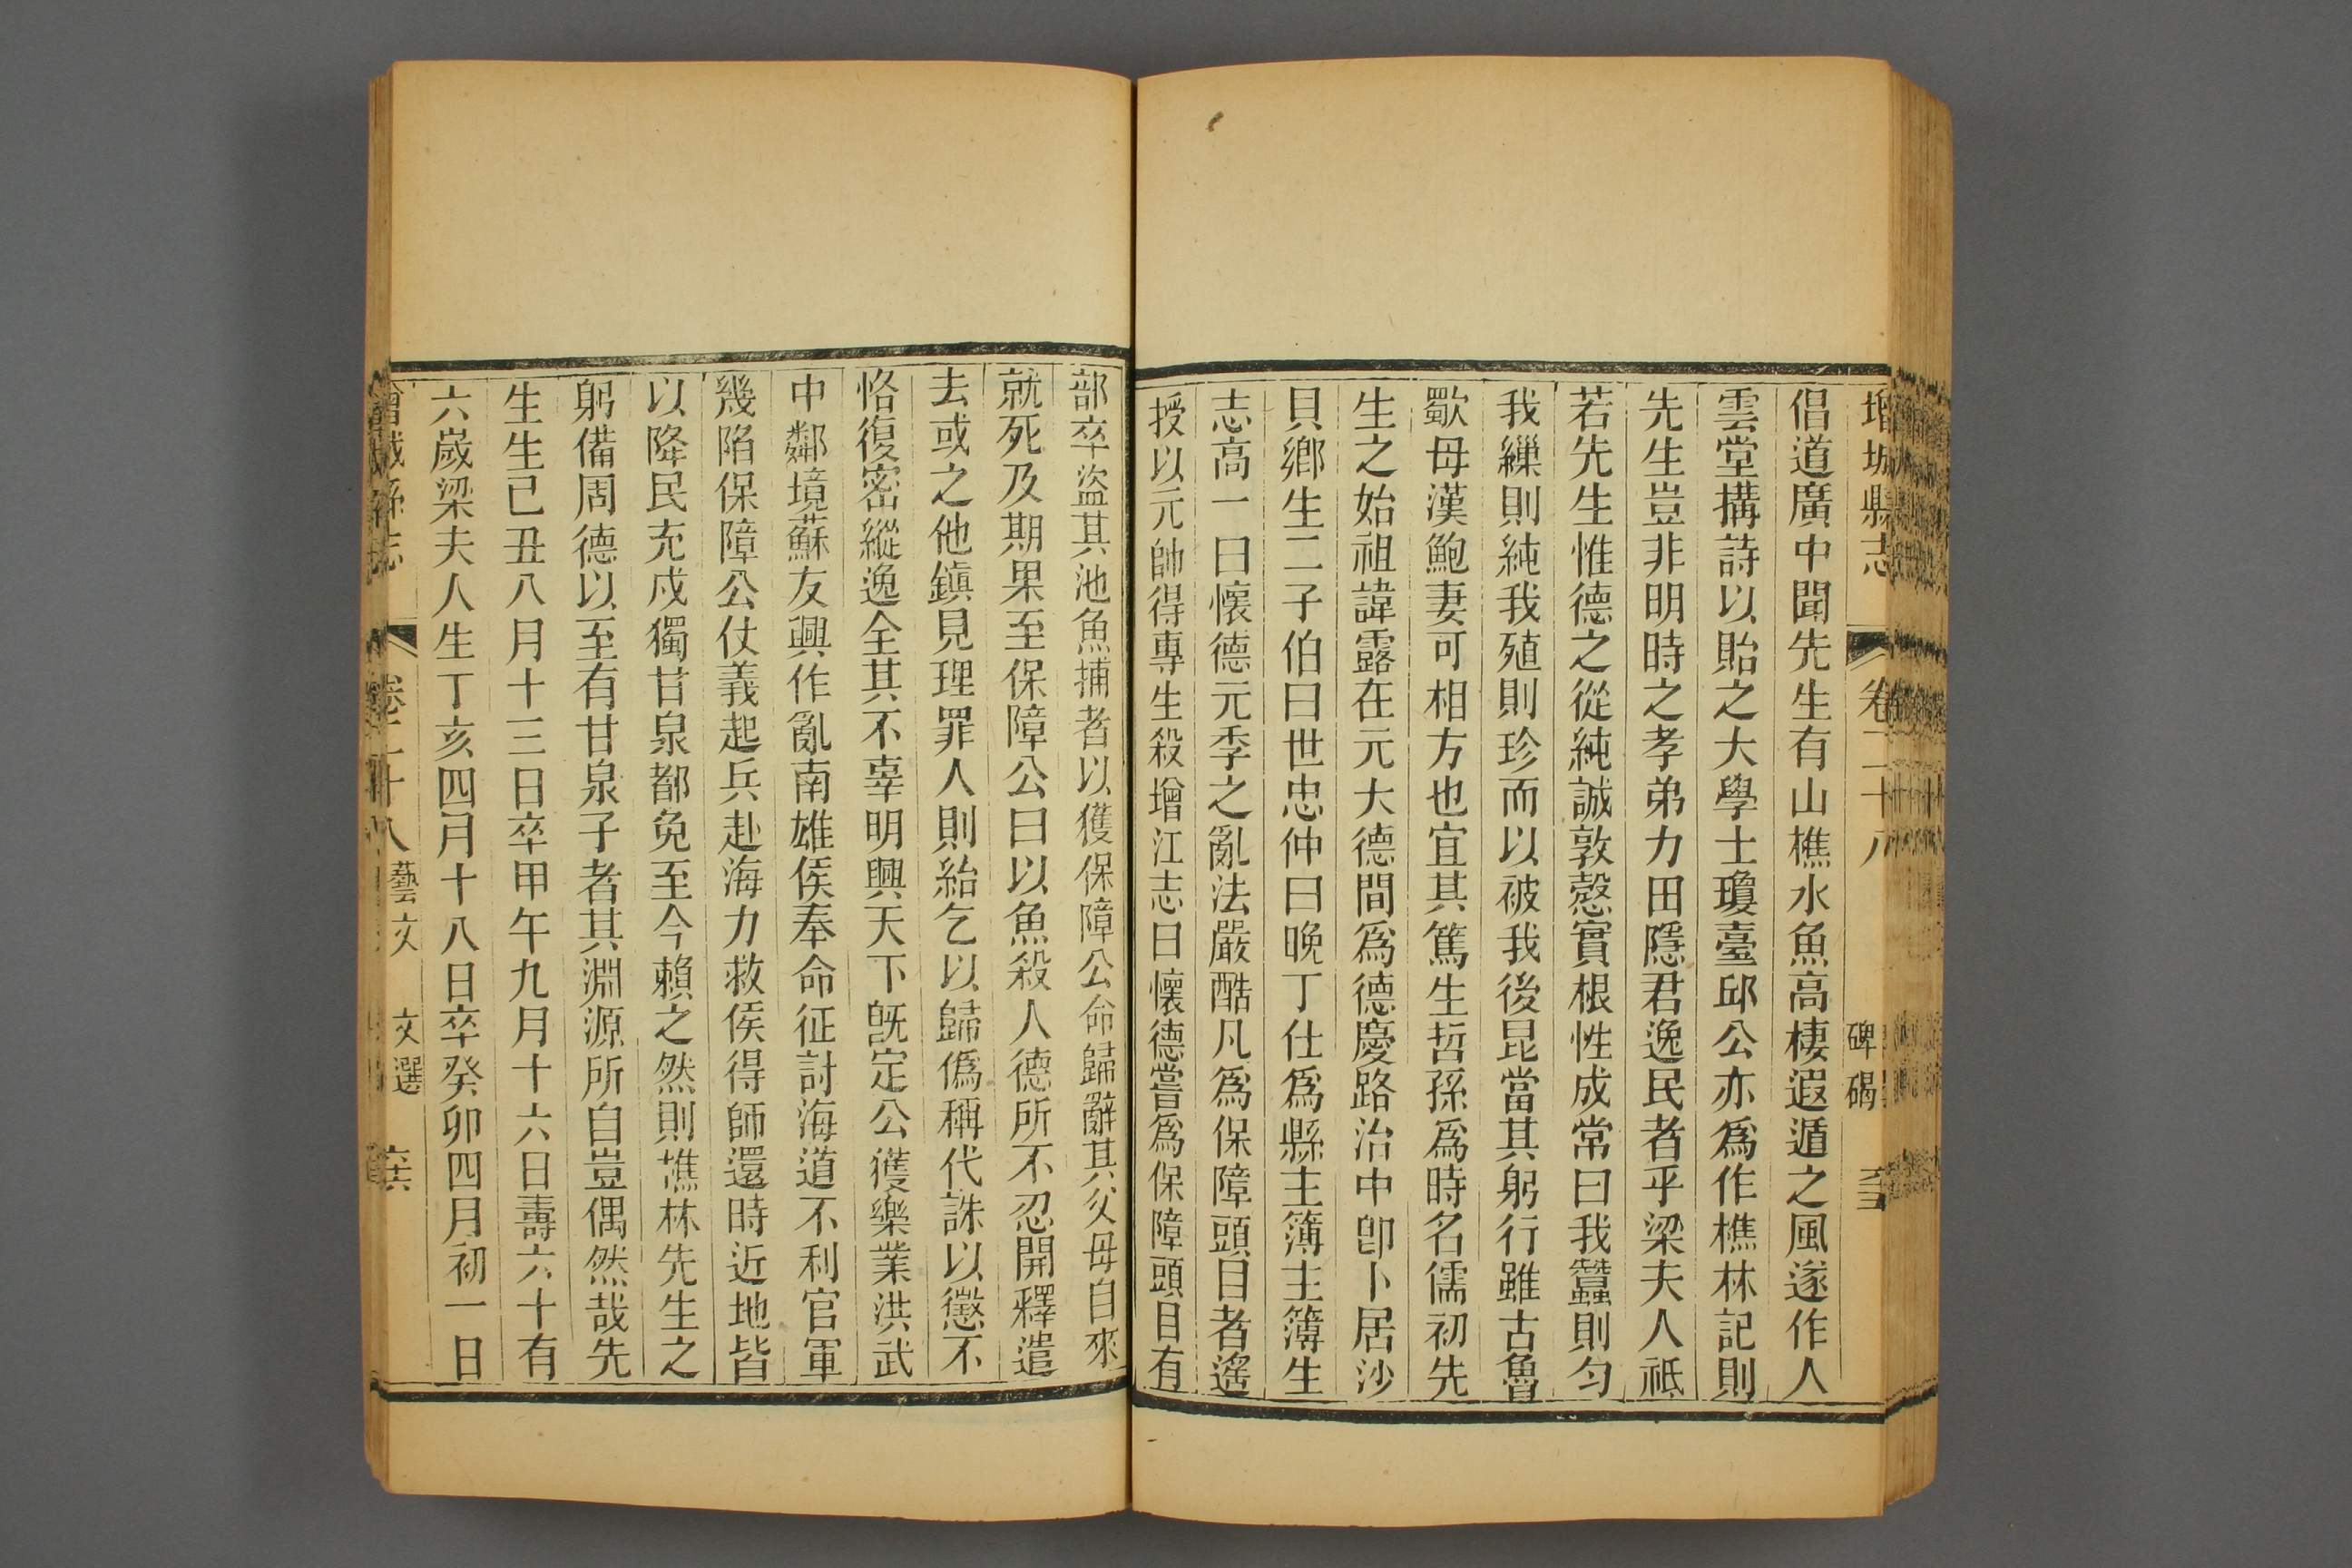 增城縣志 卷二十八 碑碣
倡道廣中聞先生有山樵水魚高棲遐遁之風遂作人
雲堂搆詩以貽之大學士瓊臺邱公亦爲作樵林記則
先生豈非明時之孝弟力田隱君逸民者乎梁夫人祗
若先生惟德之從純誠敦慤實根性成常曰我蠶則勻
我繅則純我殖則珍而以被我後昆當其躬行雖古魯
歜母漢鮑妻可相方也宜其篤生哲孫爲時名儒初先
生之始祖諱露在元大德間爲德慶路治中卽卜居沙
貝鄉生二子伯曰世忠仲曰晚丁仕爲縣主簿主簿生
志高一曰懷德元季之亂法嚴酷凡爲保障頭目者遙
授以元帥得專生殺增江志曰懷德嘗爲保障頭目有
部卒盜其池魚捕者以獲保障公命歸辭其父母自來
就死及期果至保障公曰以魚殺人德所不忍開釋遣
去或之他鎮見理罪人則紿乞以歸僞稱代誅以懲不
恪復密縱逸全其不辜明興天下旣定公獲樂業洪武
中鄰境蘇友興作亂南雄侯奉命征討海道不利官軍
幾陷保障公仗義起兵赴海力救侯得師還時近地皆
以降民充戍獨甘泉都免至今賴之然則樵林先生之
躬備周德以至有甘泉子者其淵源所自豈偶然哉先
生生己丑八月十三日卒甲午九月十六日壽六十有
六歲梁夫人生丁亥四月十八日卒癸卯四月初一日
增城縣志 卷二十八 藝文 文選